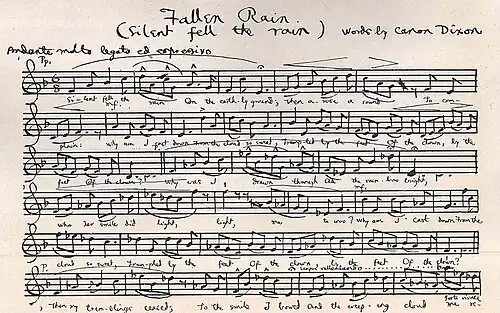 Fallen Rain.
(Silent fell the rain) words by Canon Dixon
Andante molto legato ed espressivo
Tp.
Si-lent fell the rain On the earth-ly ground; Then a-rose a sound To com-
plain: why am I cast down from the cloud so sweet, Trampled by the feet Of the clown, by the
feet Of the clown? why was I drawn through the rain-bow bright,
who her smile did light, light, me to woo? Why am I cast down from the
P. cloud so sweet, Trampled by the feet Of the clown, by the feet Of the clown?
Then my tremblings ceased; To the smile I bowed and the weep-ing cloud